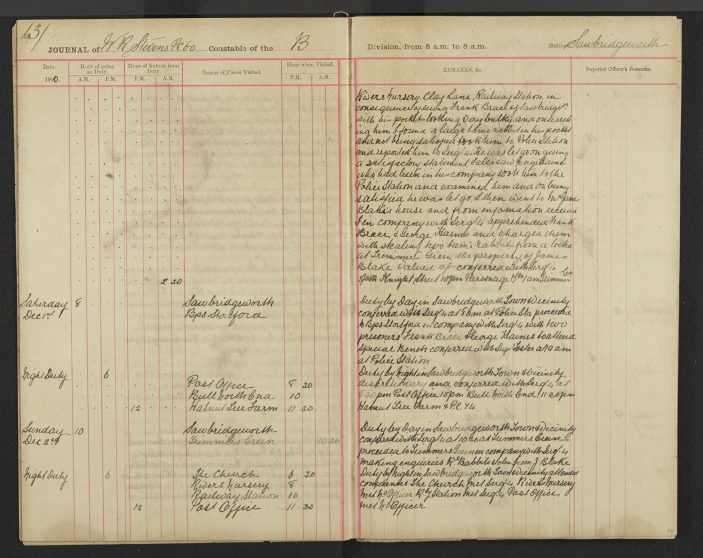 131
JOURNAL of W R Stevens PC 60 Constable of the B Division, from 8 a.m. to 8 a.m. Station Sawbridgeworth
Date. Hour of going on Duty. Hour of Return from Duty. Names of Places Visited. Hour when Visited. REMARKS, &c. Superior Officer's Remarks.
1900. A.M. P.M. A.M. P.M. P.M. A.M.
Rivers Nursery, Clay Lane, Railway Station in
consequence of seeing Frank Brace of Sawbridgeth
with his pocket looking very bulky and on search
ing him I found a large tame rabbit in his pocket
and not being satisfied took him to Police Station
and reported him to Sergt. He was let go on giving
a satisfactory statement I also saw George Haines
who had been in his company took him to the
Police Station and examined him and on being
satisfied he was let go, I then went to Mr Jam
Blake's house and from information received
I in company with Sergt apprehended Frank
Brace, & George Haines and charged them
with stealing two tame rabbits from a
at Trimmers Green the property of James
Blake valued at conferred with Sergt
2 30 Knight Street 10 pm Parsonage 1 am
Saturday 8 Sawbridgeworth Duty by Day in Sawbridgeworth Town & Vicinity
Dec 1st Bps Stortford conferred with Sergt at 8 am at Police Sta proceeded
to Bps Stortford in company with Sergt with two
prisoners Frank Brace & George Haines to attend
Special Bench conferred with Sup Foster at 9 am
at Police Station
Night Duty 6 Duty by Night in Sawbridgeworth Town & Vicinity
Post Office 8 30 discretionary and conferred with Sergt at
Bull North End 10 8 30 pm Post Office 10 pm Bull North End 11-30 pm
12 Walnut Tree Farm 11 30 Walnut Tree Farm & P.C. 74
Sunday 10 Sawbridgeworth Duty by Day in Sawbridgeworth Town & Vicinity
Dec 2nd Trimmers Green 10 30 conferred with Sergt at 10 at Trimmers Green
proceeded to Trimmers Green in company with Sergt
making enquiries Re Rabbits stolen from J. Blake
Night Duty 6 The Church 6 30 Duty by Night in Sawbridgeworth Town & Vicinity attended
Rivers Nursery 8 The Church met Sergt Rivers Nursery
Railway Station 10 met No Officer Ry Station met Sergt Post Office
12 Post Office 11 30 met No Officer